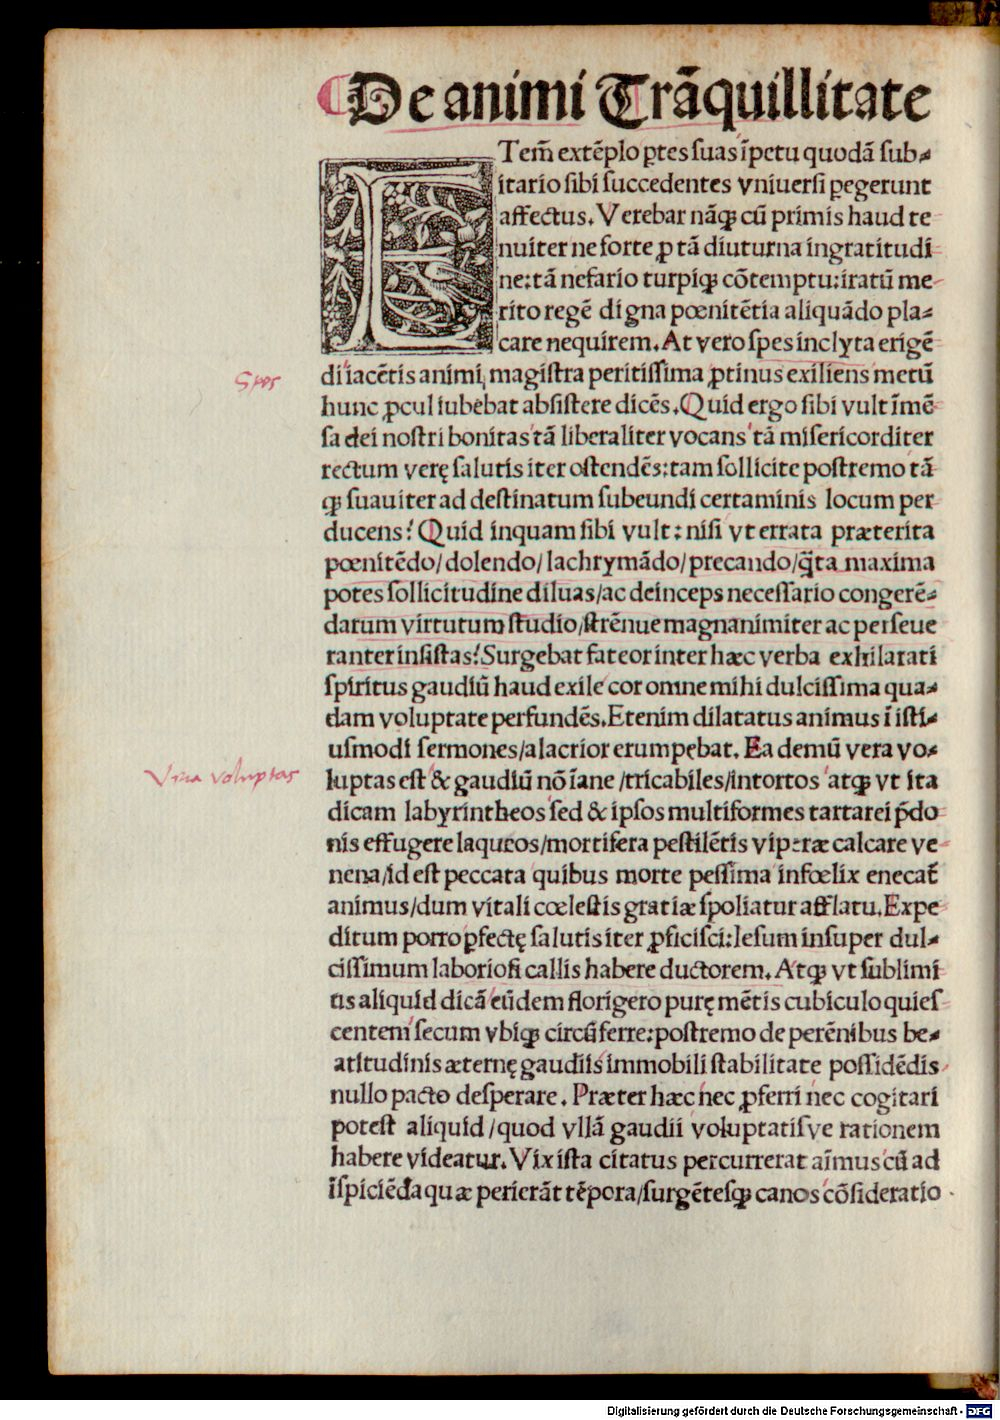 De animi Trãquillitate
ITem̃ extẽplo ꝑtes suas ĩpetu quodã sub-
itario sibi succedentes vniuersi ꝑegerunt
affectus. Verebar nãqꝫ cũ primis haud te
nuiter ne forte ꝓ tã diuturna ingratitudi
ne: tã nefario turpiqꝫ cõtemptu: iratũ me
rito regẽ digna pœnitẽtia aliquãdo pla-
care nequirem. At vero spes inclyta erigẽ
di iacẽtis animi magistra peritissima ꝓtinus exiliens metũ
hunc ꝓcul iubebat absistere dicẽs. Quid ergo sibi vult ĩmẽ
sa dei nostri bonitas tã liberaliter vocans tã misericorditer
rectum verę salutis iter ostendẽs: tam sollicite postremo tã
qꝫ suauiter ad destinatum subeundi certaminis locum per
ducens? Quid inquam sibi vult: nisi vt errata præterita
pœnitẽdo/ dolendo/ lachrymãdo/ precando/ q̃ta maxima
potes sollicitudine diluas/ ac deinceps necessario congerẽ-
darum virtutum studio/ strẽnue magnanimiter ac perseue
ranter insistas? Surgebat fateor inter hæc verba exhilarati
spiritus gaudiũ haud exile cor omne mihi dulcissima qua-
dam voluptate perfundẽs. Etenim dilatatus animus ĩ isti-
usmodi sermones/ alacrior erumpebat. Ea demũ vera vo-
luptas est & gaudiũ nõ ĩane/ tricabiles/ intortos atqꝫ vt ita
dicam labyrintheos sed & ipsos multiformes tartarei p̃do
nis effugere laqueos/ mortifera pestilẽtis viperæ calcare ve
nena/ id est peccata quibus morte pessima infœlix enecat̃
animus/ dum vitali cœlestis gratiæ spoliatur afflatu. Expe
ditum porro ꝑfectę salutis iter ꝓficisci: Iesum insuper dul-
cissimum laboriosi callis habere ductorem. Atqꝫ vt sublimi
us aliquid dicã eũdem florigero purę mẽtis cubiculo quies
centem secum vbiqꝫ circũferre: postremo de perẽnibus be-
atitudinis æternę gaudiis immobili stabilitate possidẽdis
nullo pacto desperare. Præter hæc nec ꝓferri nec cogitari
potest aliquid/ quod vllã gaudii voluptatisve rationem
habere videatur. Vix ista citatus percurrerat aĩmus cũ ad
ĩspiciẽda quæ perierãt tẽpora/ surgẽtesqꝫ canos cõsideratio
Spes
Vera voluptas
Digitalisierung gefördert durch die Deutsche Forschungsgemeinschaft - DFG